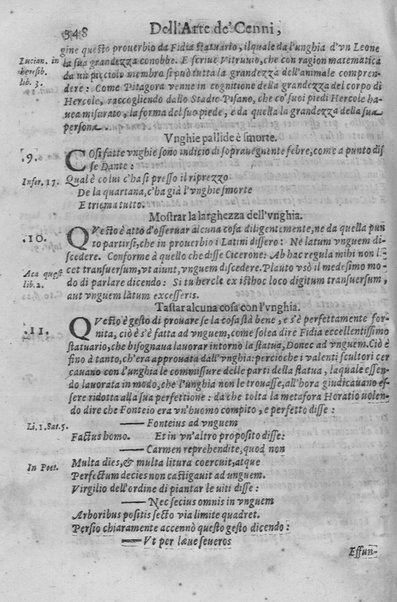 348 Dell'Arte de' Cenni,
gine questo prouerbio da Fidia statuario, ilquale da l'vnghia d'vn Leone
Lucian. in
heresib.
lib. 3.
la sua grandezza conobbe. E scriue Vitruuio, che con ragion matematica
da vn picciolo membro si può tutta la grandezza dell'animale compren-
dere: Come Pitagora venne in cognitione della grandezza del corpo di
Hercole, raccogliendo dallo Stadio Pisano, che co' suoi piedi Hercole ha-
uea misurato, la forma del suo piede, e da quella la grandezza della sua
persona.
Vnghie pallide è smorte.
9.
COsi fatte vnghie sono indicio di soprauegnente febre, come a punto dis-
se Dante:
Infer. 17.
Qual è colui c'ha si presso il riprezzo
De la quartana, c'ha già l'vnghie smorte
E triema tutto.
Mostrar la larghezza dell'vnghia.
10.
QVesto è atto d'osseruar alcuna cosa diligentemente, ne da quella pun
to partirsi, che in prouerbio i Latini dissero: Ne latum vnguem di-
scedere. Conforme à quello che disse Cicerone: Ab hac regula mihi non li-
cet transuersum, vt aiunt, vnguem discedere. Plauto vsò il medesimo mo-
Aca quest
lib. 2.
do di parlare dicendo: Si tu hercle ex isthoc loco digitum transuersum,
aut vnguem latum excesseris.
Tastar alcuna cosa con l'vnghia.
11.
QVesto è gesto di prouare se la cosa stà bene, e s'è perfettamente for-
nita, ciò è s'è fatta ad vnguem, come solea dire Fidia eccellentissimo
statuario, che bisognaua lauorar intorno la statua, Donec ad vnguem. Ciò è
fino à tanto, ch'era approuata dall'vnghia: percioche i valenti scultori cer
cauano con l'vnghia le commissure delle parti della statua, laquale essen-
do lauorata in modo, che l'vnghia non le trouasse, all'hora giudicauano es-
sere ridotta alla sua perfettione: da che tolta la metafora Horatio volen-
do dire che Fonteio era vn'huomo compito, e perfetto disse:
Li. 1. Sat. 5.
—— Fonteius ad vnguem
Factus homo. Et in vn'altro proposito disse:
—— Carmen reprehendite, quod non
In Poet.
Multa dies, & multa litura coercuit, atque
Perfectum decies non castigauit ad vnguem.
Virgilio dell'ordine di piantar le viti disse:
—— Nec secius omnis in vnguem
Arboribus positis secto via limite quadret.
Persio chiaramente accennò questo gesto dicendo:
—— Vt per læue seueros
Effun-